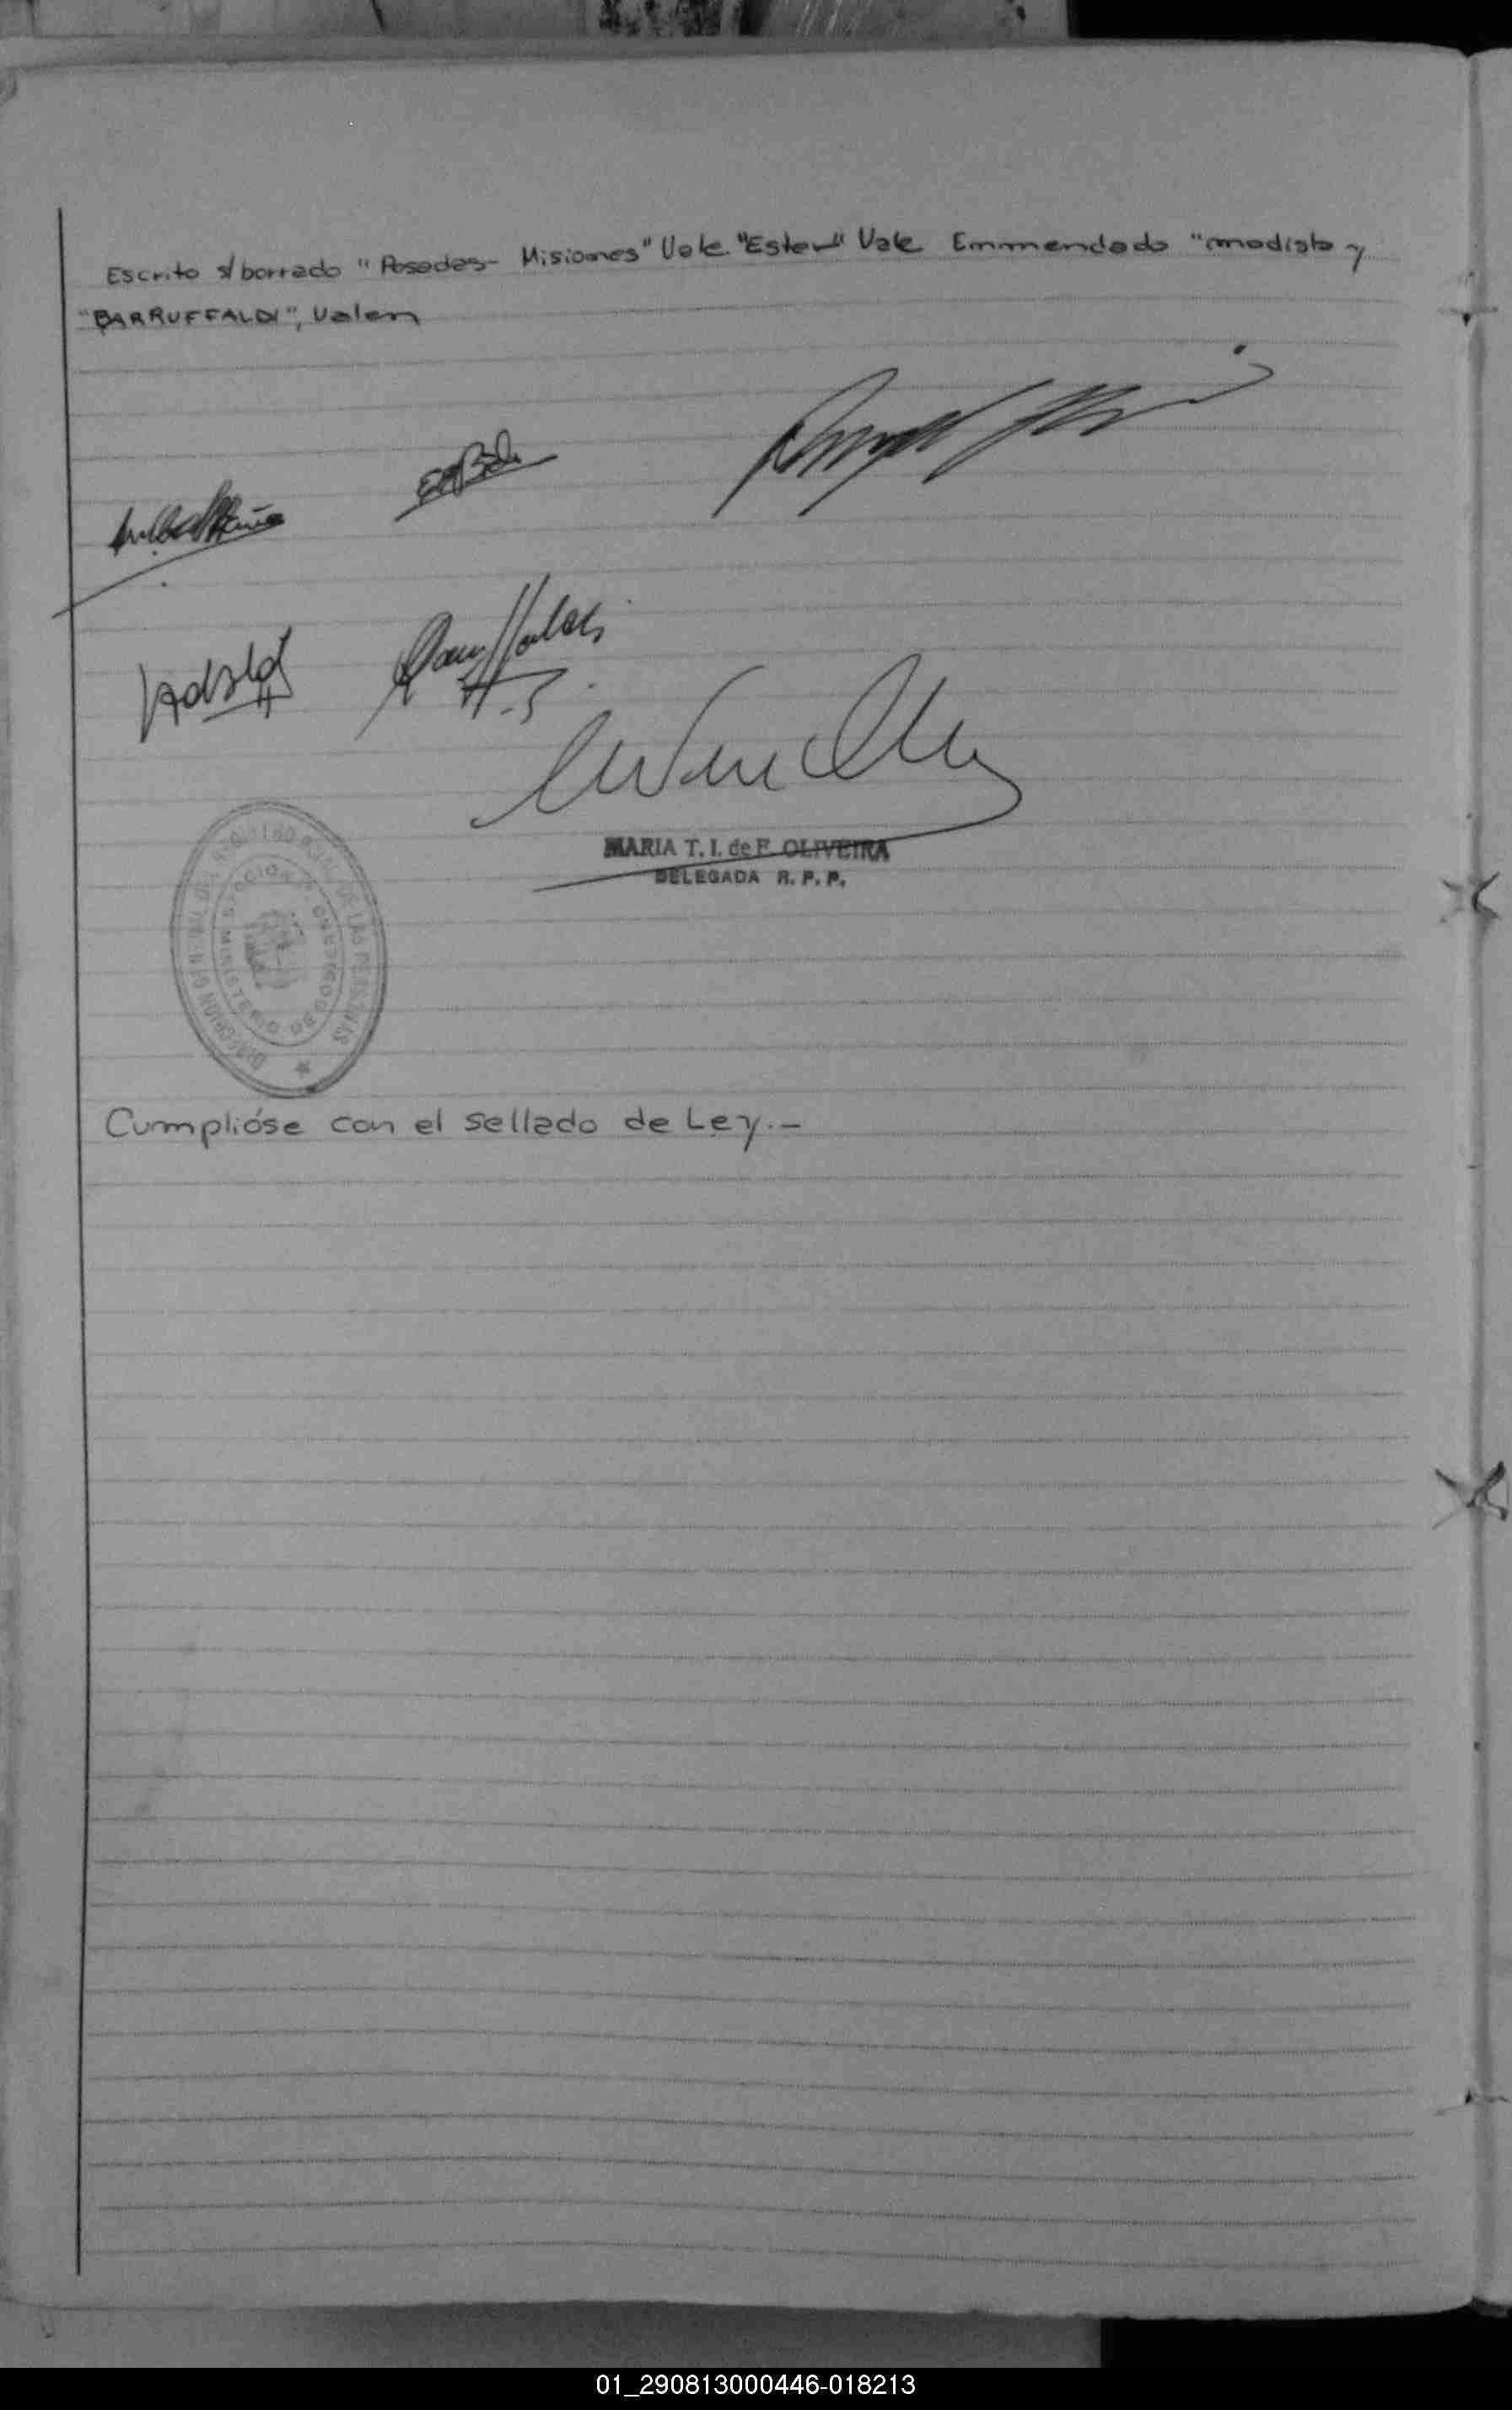 Escrito s/borrado "Posadas- Misiones" Vale. "Ester" Vale Emmendado "modista y
"BARRUFFALDI", Valen
MARIA T. I. de F. OLIVEIRA
DELEGADA R. P. P.
DIRECCION GENERAL DEL REGISTRO PCIAL. DE LAS PERSONAS
MINISTERIO DE GOBIERNO
Cumplióse con el sellado de Ley.-
01_290813000446-018213